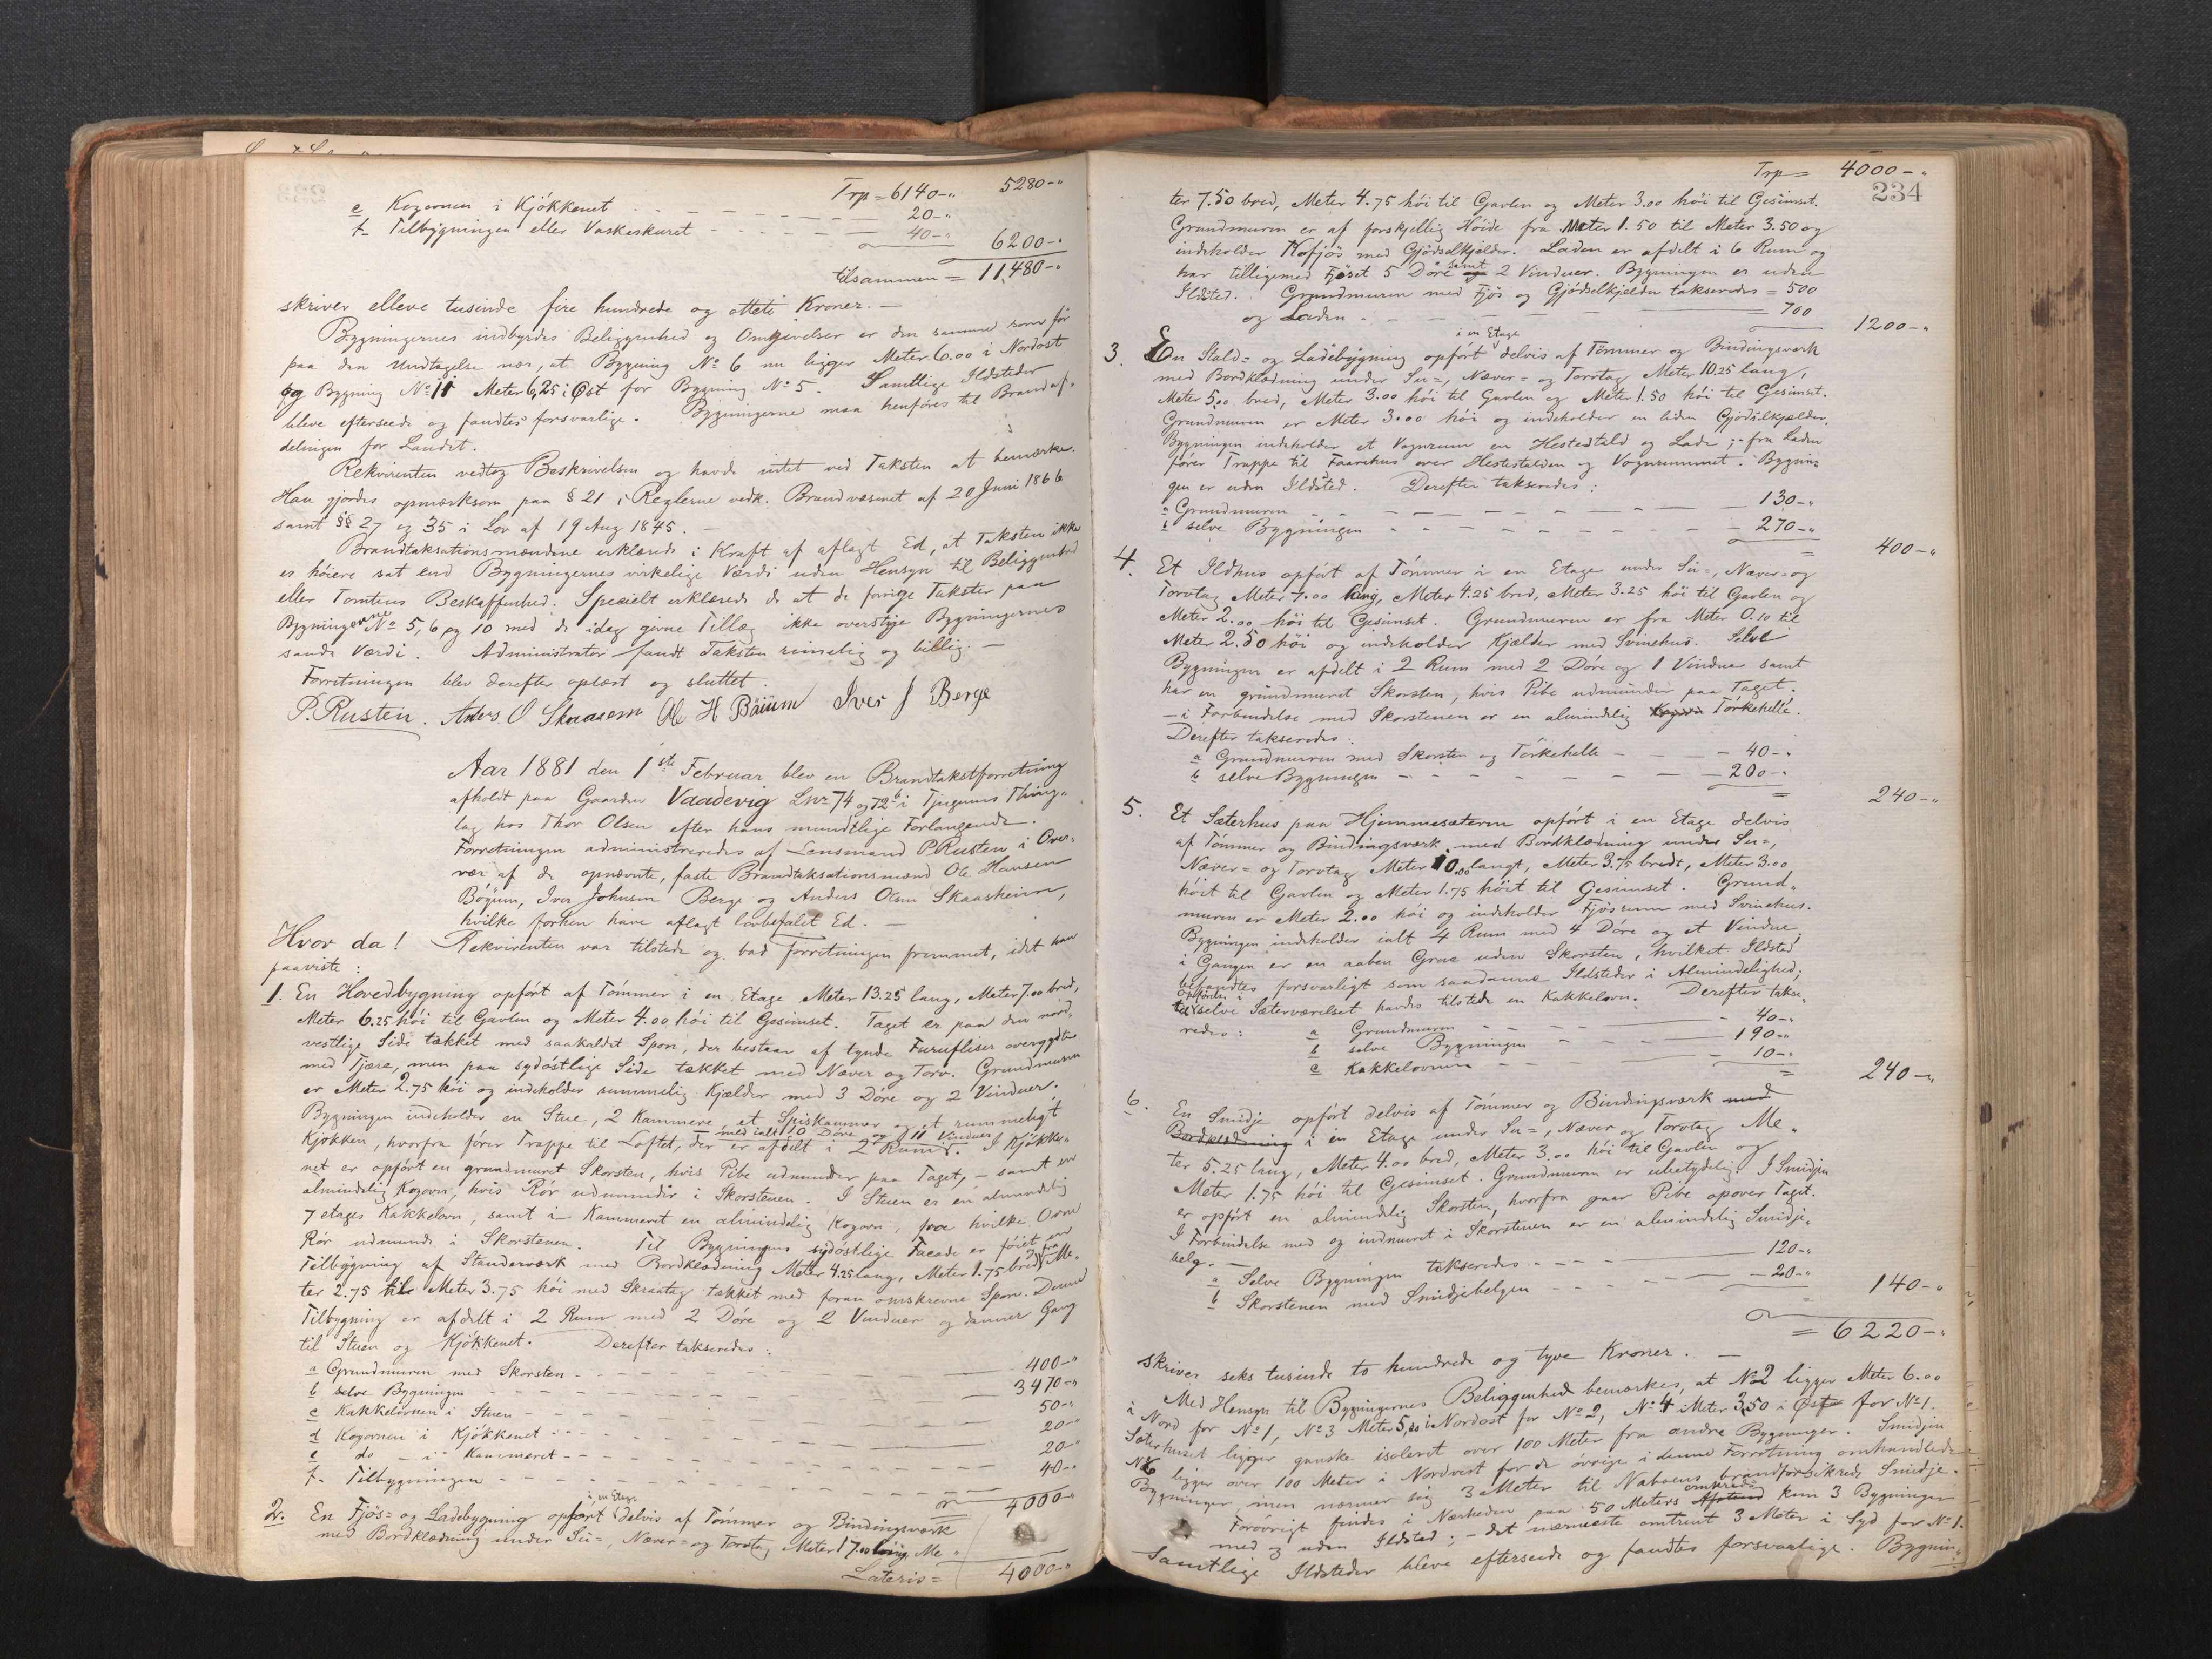 Trp = 6140-„ 5280-„
e Kogovnen i Kjökkenet - - - 20-„
f- Tilbygningen eller Vaskeskuret - - - 40-„
6200-„
tilsammen = 11,480-„
skriver elleve tusinde fire hundrede og otteti Kroner. —
Bygningernes indbyrdes Beliggenhed og Omgivelser er den samme som för
paa den Undtagelse nær, at Bygning No 6 nu ligger Meter 6.00 i Nordost
og Bygning No 11 Meter 6,25 i Øst for Bygning No 5. Samtlige Ildsteder
bleve efterseede og fandtes forsvarlige. Bygningerne maa henföres til Brandaf-
delingen for Landet.
Rekvirenten vedtog Beskrivelsen og havde intet ved Taksten at bemærke.
Han gjordes opmærksom paa § 21 i Reglerne vedk. Brandvæsenet af 20 Juni 1866
samt §§ 27 og 35 i Lov af 19 Aug 1845. —
Brandtaksationsmændene erklærede i Kraft af aflagt Ed, at Taksten ikke
er höiere sat end Bygningernes virkelige Værdi uden Hensyn til Beliggenhed
eller Tomtens Beskaffenhed. Specielt erklærede de at de forrige Takster paa
Bygningerne No 5, 6 og 10 med de idag givne Tillæg ikke overstige Bygningernes
sande Værdi. Administrator fandt Taksten rimelig og billig. —
Forretningen blev derefter oplæst og sluttet.
P. Rusten. Anders O Skaasem Ole H Böium Iver J Berge
Aar 1881 den 1ste Februar blev en Brandtakstforretning
afholdt paa Gaarden Vaadevig Lnr 74 og 72b i Tjugums Thing-
lag hos Thor Olsen efter hans mundtlige Forlangende.
Forretningen administreredes af Lensmand P. Rusten i Over-
vær af de opnævnte, faste Brandtaksationsmænd Ole Hansen
Böyum, Iver Johnsen Berge og Anders Olsen Skaasheim,
hvilke forhen have aflagt lovbefalet Ed. —
Hvor da! Rekvirenten var tilstede og bad Forretningen fremmet, idet han
paaviste:
1. En Hovedbygning opfört af Tömmer i en Etage Meter 13.25 lang, Meter 7.00 bred,
Meter 6.25 höi til Gavlen og Meter 4.00 höi til Gesimset. Taget er paa den nord-
vestlige Side tækket med saakaldet Spon, der bestaar af tynde Furufliser overgydte
med Tjære, men paa sydöstlige Side tækket med Næver og Torv. Grundmuren
er Meter 2.75 höi og indeholder rummelig Kjælder med 3 Döre og 2 Vinduer.
Bygningen indeholder en Stue, 2 Kammere, et Spiskammer og et rummeligt
Kjökken, hvorfra förer Trappe til Loftet, der er afdelt i 2 Rum med ialt 10 Döre og 11 Vinduer. I Kjökke-
net er opfört en grundmuret Skorsten, hvis Pibe udmunder paa Taget, — samt en
almindelig Kogovn, hvis Rör udmunder i Skorstenen. I Stuen er en almindelig
7 etages Kakkelovn, samt i Kammeret en almindelig Kogovn, fra hvilke Ovne
Rör udmunde i Skorstenen. Til Bygningens sydöstlige Facade er föiet en
Tilbygning af Standerværk med Bordklædning Meter 4.25 lang, Meter 1.75 bred, fra Me-
ter 2.75 til Meter 3.75 höi med Skraatag tækket med foran omskrevne Spon. Denne
Tilbygning er afdelt i 2 Rum med 2 Döre og 2 Vinduer og danner Gang
til Stuen og Kjökkenet. Derefter takseredes:
a Grundmuren med Skorsten - - - 400-„
b selve Bygningen - - - 3470-„
c Kakkelovnen i Stuen - - - 50-„
d Kogovnen i Kjökkenet - - - 20-„
e do - i Kammeret - - - 20-„
f- Tilbygningen - - - 40-„
4000-„
2. En Fjös- og Ladebygning opfört i en Etage delvis af Tömmer og Bindingsværk
med Bordklædning under Su-, Næver- og Torvtag Meter 17.00 lang, Me-
Lateris = 4000-„
Trp = 4000-„
234
ter 7.50 bred, Meter 4.75 höi til Gavlen og Meter 3.00 höi til Gesimset.
Grundmuren er af forskjellig Höide fra Meter 1.50 til Meter 3.50 og
indeholder Kofjös med Gjödselkjelder. Laden er afdelt i 6 Rum og
har tilligemed Fjöset 5 Döre samt 2 Vinduer. Bygningen er uden
Ildsted. Grundmuren med Fjös og Gjödselkjelder takseredes = 500
og Laden - - - 700
1200-„
3. En Stald- og Ladebygning opfört i en Etage delvis af Tömmer og Bindingsværk
med Bordklædning under Su-, Næver- og Torvtag Meter 10.25 lang,
Meter 5.00 bred, Meter 3.00 höi til Gavlen og Meter 1.50 höi til Gesimset.
Grundmuren er Meter 3.00 höi og indeholder en liden Gjödselkjælder.
Bygningen indeholder et Vognrum en Hestestald og Lade; - fra Laden
förer Trappe til Faarehus over Hestestalden og Vognrummet. Bygnin-
gen er uden Ildsted. Derefter takseredes:
a Grundmuren - - - 130-„
b selve Bygningen - - - 270-„
400-„
4. Et Ildhus opfört af Tömmer i en Etage under Su-, Næver- og
Torvtag Meter 7.00 lang, Meter 4.25 bred, Meter 3.25 höi til Gavlen og
Meter 2.00 höi til Gesimset. Grundmuren er fra Meter 0.10 til
Meter 2.50 höi og indeholder Kjælder med Svinehus. Selve
Bygningen er afdelt i 2 Rum med 2 Döre og 1 Vindue samt
har en grundmuret Skorsten, hvis Pibe udmunder paa Taget.
— i Forbindelse med Skorstenen er en almindelig Törkehelle.
Derefter takseredes:
a Grundmuren med Skorsten og Törkehelle - - - 40-„
b selve Bygningen - - - 200-„
240-„
5. Et Sæterhus paa Hjemmesæteren opfört i en Etage delvis
af Tömmer og Bindingsværk med Bordklædning under Su-,
Næver- og Torvtag Meter 10.00 langt, Meter 3.75 bredt, Meter 3.00
höit til Gavlen og Meter 1.75 höit til Gesimset. Grund-
muren er Meter 2.00 höi og indeholder Fjösrum med Svinehus.
Bygningen indeholder ialt 4 Rum med 4 Döre og et Vindue,
i Gangen er en aaben Grue uden Skorsten, hvilket Ildsted
befandtes forsvarligt som saadanne Ildsteder i Almindelighed;
selve Sæterværelset havdes tilstede en Kakkelovn. Derefter takse-
redes: a Grundmuren - - - 40-„
b selve Bygningen - - - 190-„
c Kakkelovnen - - - 10-„
240-„
6. En Smidje opfört delvis af Tömmer og Bindingsværk med
Bordklædning i en Etage under Su-, Næver og Torvtag Me-
ter 5.25 lang, Meter 4.00 bred, Meter 3.00 höi til Gavlen og
Meter 1.75 höi til Gesimset. Grundmuren er ubetydelig. I Smidjen
er opfört en almindelig Skorsten, hvorfra gaar Pibe opover Taget.
I Forbindelse med og indmuret i Skorstenen er en almindelig Smidje-
belg. —
a Selve Bygningen takseredes - - - 120-„
b Skorstenen med Smidjebelgen - - - 20-„
140-„
= 6220-„
skriver seks tusinde to hundrede og tyve Kroner. —
Med Hensyn til Bygningernes Beliggenhed bemærkes, at No 2 ligger Meter 6.00
i Nord for No 1, No 3 Meter 5,00 i Nordost for No 2, No 4 Meter 3,50 i Øst for No 1.
Sæterhuset ligger ganske isoleret over 100 Meter fra andre Bygninger. Smidjen
No 6 ligger over 100 Meter i Nordvest for de övrige i denne Forretning omhandlede
Bygninger, men nærmer sig 3 Meter til Naboens brandforsikrede Smidje.
Forövrigt findes i Nærheden paa 50 Meters omkreds Afstand kun 3 Bygninger
med og uden Ildsted; - det nærmeste omtrent 3 Meter i Syd for No 1.
Samtlige Ildsteder bleve efterseede og fandtes forsvarlige. Bygnin-